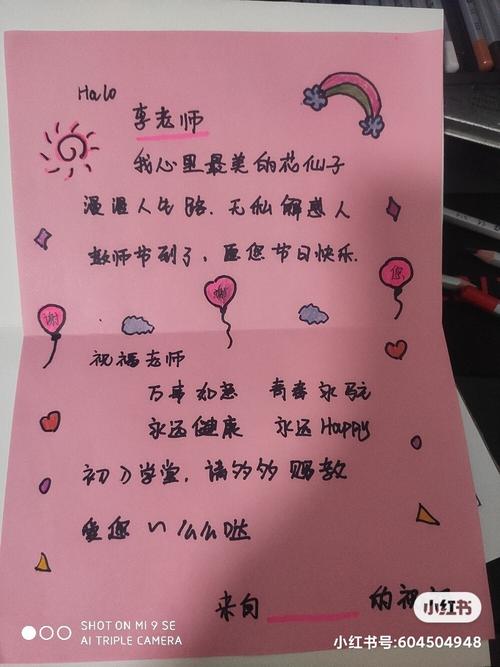 Halo
李老师
我心里最美的花仙子
漫漫人生路.无私解惑人
教师节到了,愿您节日快乐.
谢
谢
您
祝福老师
万事如意 青春永驻
永远健康 永远Happy
初入学堂,请多多赐教
爱您 ~ 么么哒
来自 的祝
小红书
SHOT ON MI 9 SE
AI TRIPLE CAMERA
小红书号:604504948